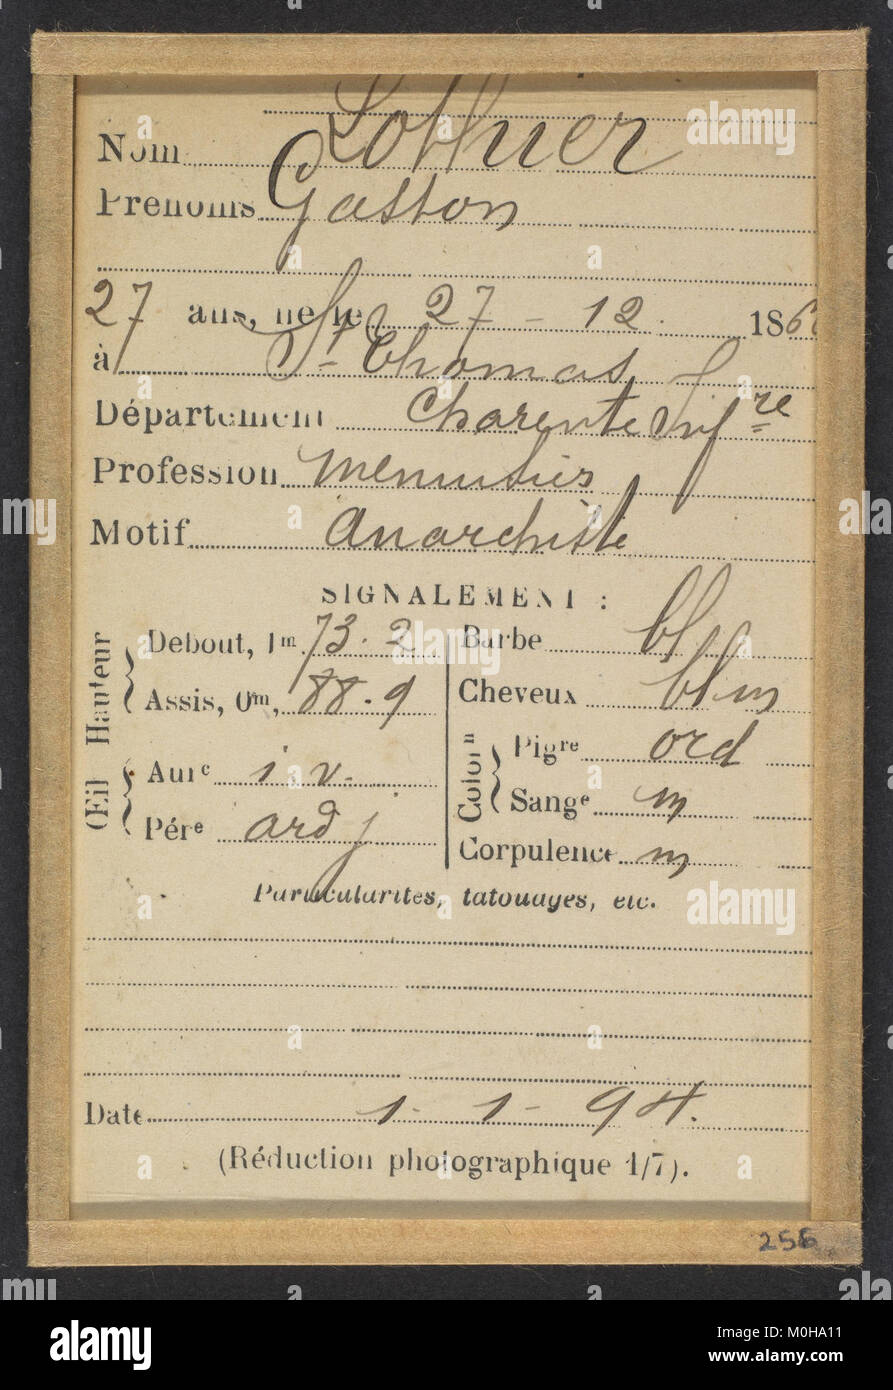 Nom Lothier
Prénoms Gaston
27 ans, né le 27 - 12. 186
à St Thomas
Département Charente Infre
Profession menuisier
Motif Anarchiste
SIGNALEMENT :
Hauteur
Debout, 1m 73.2
Assis, 0m, 88.9
Œil
Aure i. v.
Pére ard j
Barbe bl
Cheveux bl. m
Colorn
Pigre ord
Sange m
Corpulence m
Particularités, tatouages, etc.
Date 1 - 1 - 94.
(Réduction photographique 1/7).
256
alamy
Image ID: M0HA11
www.alamy.com